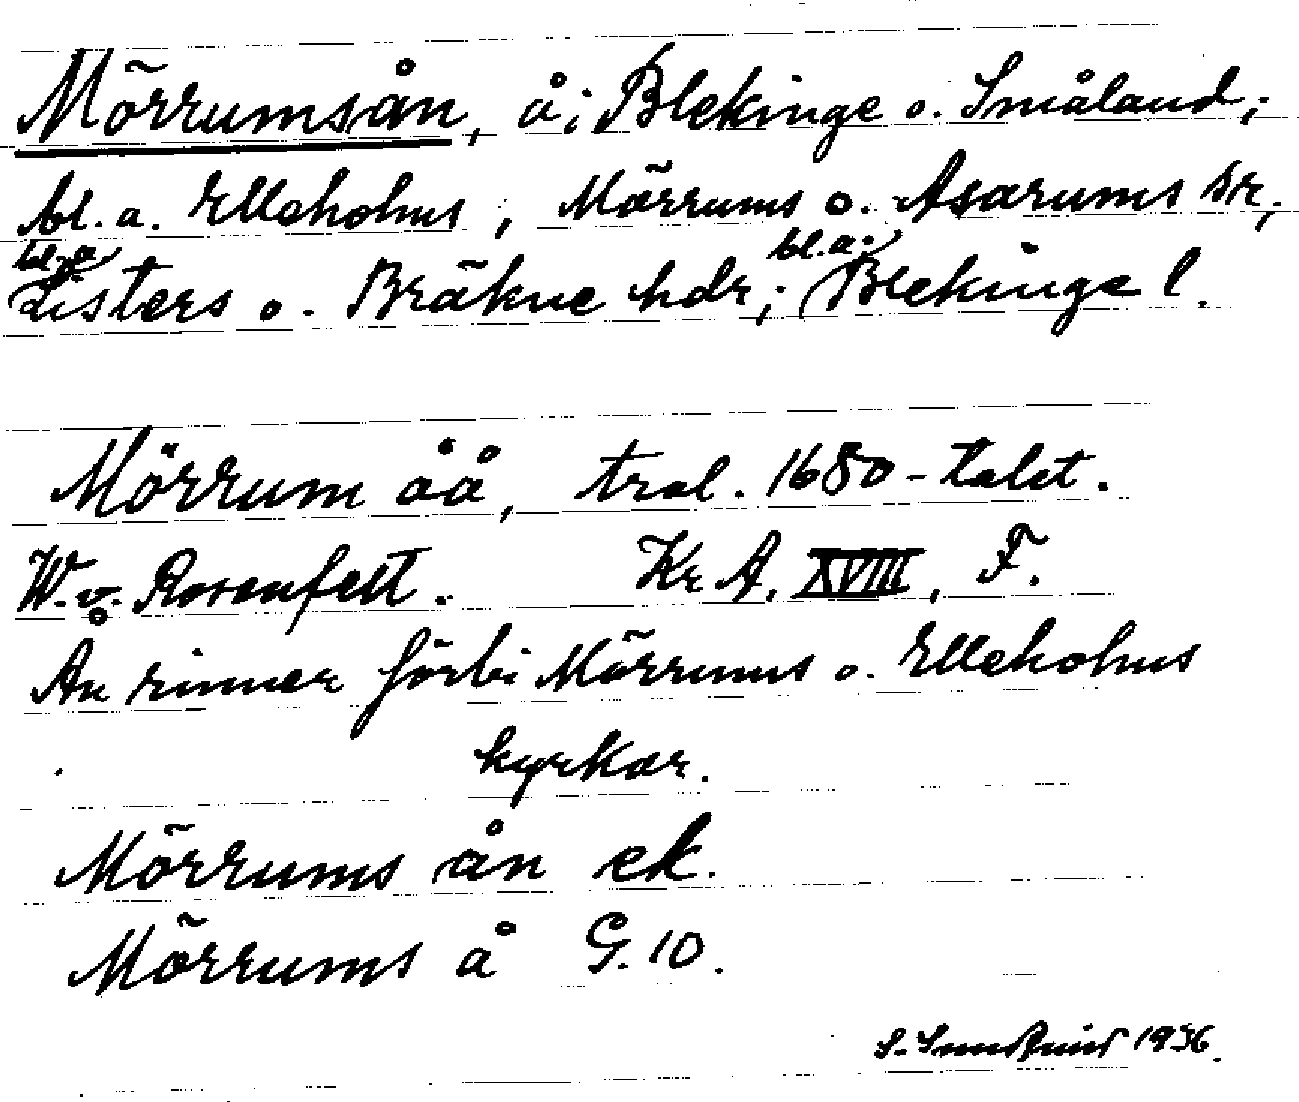 Mörrumsån, å i Blekinge o. Småland;
bl. a. Elleholms, Mörrums o. Asarums sr,
bl. a. bl. a.
Listers o. Bräkne hdr; Blekinge l.
Mörrum åå, tral. 1680-talet.
W. v. Rosenfelt. Kr A. XVIII, F.
Ån rinner förbi Mörrums o. Elleholms
kyrkor.
Mörrums ån ek.
Mörrums å G. 10.
S. 1936.